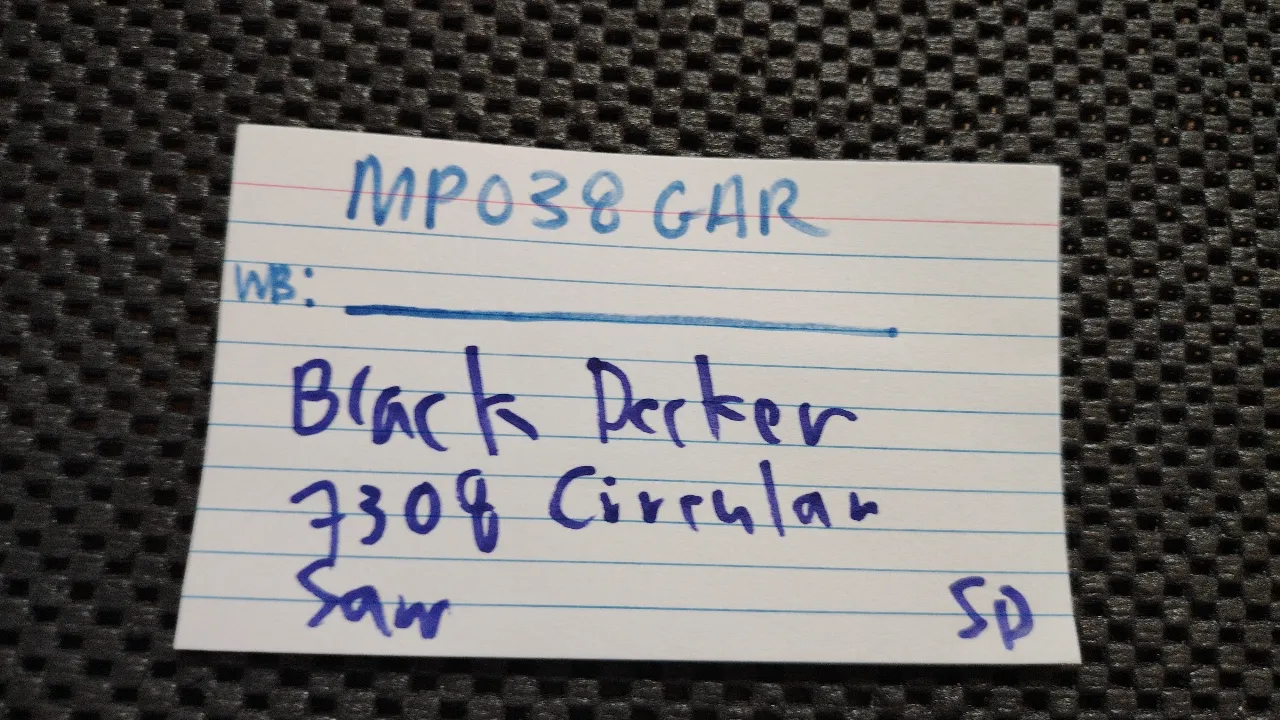 MP038 GAR
WB:
Black Decker
7308 Circular
Saw SD